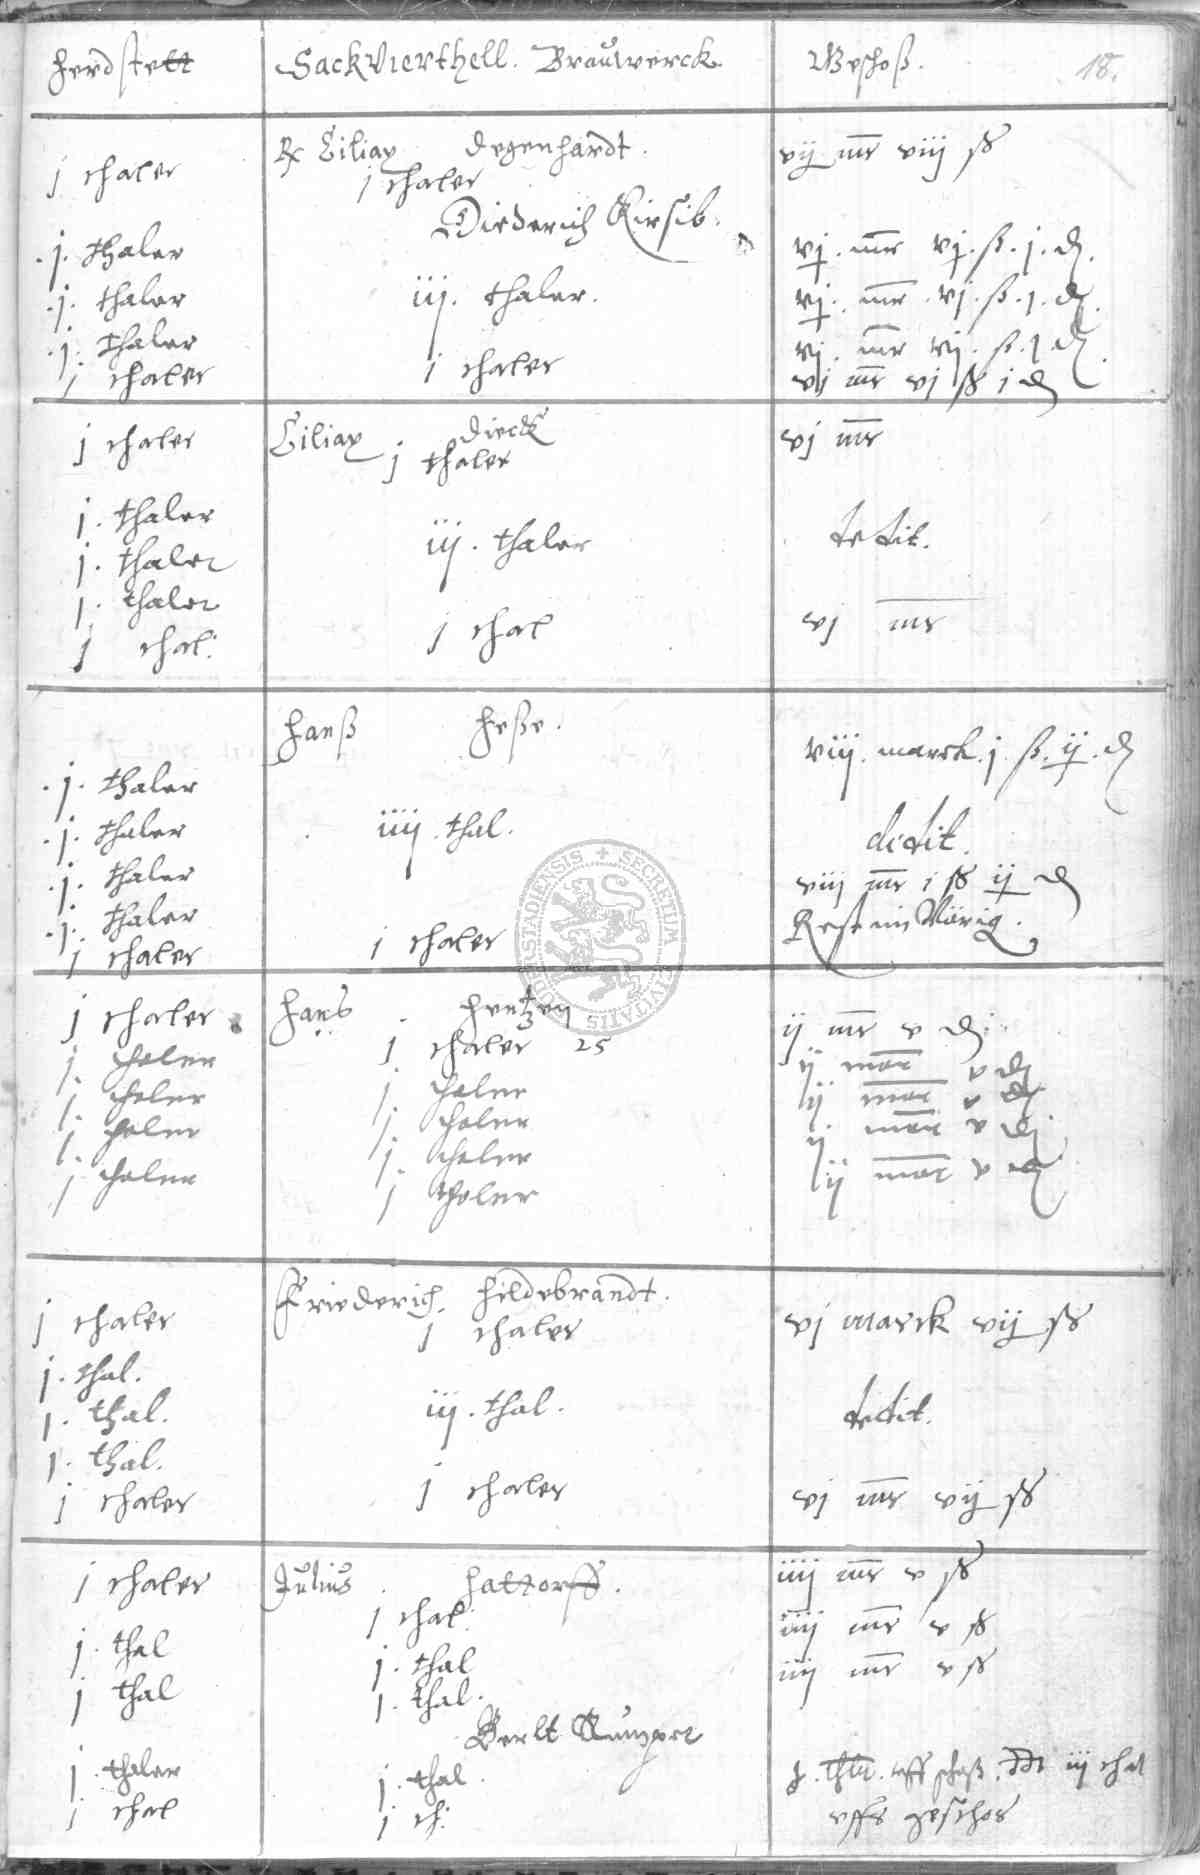 Ferdstett Sackvierthell. Brauwerck. Geschoß. 18.
j thaler Ciliax Degenhardt. vij mr viij ß
j thaler
Diederich Kirsib.
.j. thaler vj. mr vj. ß. j. d.
.j. thaler iij. thaler. vj. mr. vj. ß. j. d.
.j. thaler vj. mr vj. ß. j d.
j thaler j thaler vj mr vj ß j d
j thaler Ciliax Dieck vj mr
j thaler
j. thaler
j. thaler iij. thaler dedit.
j. thaler
j thal: j thal vj mr
Hanß Heße. viij. marck. j. ß. ij. d
.j. thaler
.j. thaler iiij. thal. dedit.
.j. thaler viij mr i ß ij d
.j. thaler Rest im Vörig.
j thaler j thaler
j thaler Hans Hentzen ij mr v d:
j thaler 25
j. thaler j. thaler ij mar v d
j. thaler j. thaler ij mar v d
j. thaler j. thaler ij mar v d
j thaler j thaler ij mar v d
Friederich Hildebrandt.
j thaler j thaler vj marck vij ß
j. thal.
j. thal. iij. thal. dedit.
j. thal.
j thaler j thaler vj mr vij ß
j thaler Julius Hattorff. iiij mr v ß
j thal: iiij mr v ß
j. thal j. thal iiij mr v ß
j thal j. thal.
Berlt
j. thaler j. thal. uff schoß. iij thal
j thal j th: uffs geschos
SECRETUM CIVITATIS